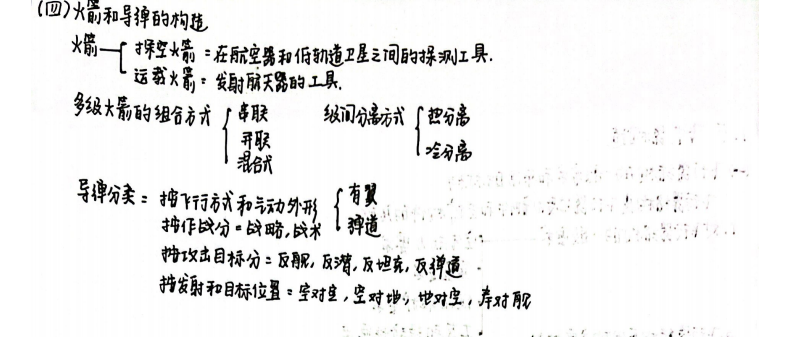 (四)火箭和导弹的构造
火箭 探空火箭：在航空器和低轨道卫星之间的探测工具.
运载火箭：发射航天器的工具.
多级火箭的组合方式 串联 级间分离方式 热分离
并联 冷分离
混合式
导弹分类：按飞行方式和气动外形 有翼
按作战分：战略,战术 弹道
按攻击目标分：反舰,反潜,反坦克,反弹道
按发射和目标位置：空对空,空对地,地对空,岸对舰